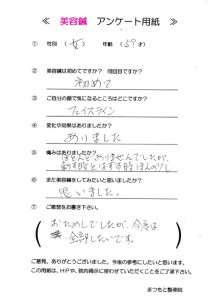 ≪ 美容鍼 アンケート用紙 ≫
① 性別 (女) 年齢 (59才)
② 美容鍼は初めてですか? 何回目ですか?
初めて
③ ご自分の顔で気になるところはどこですか?
フェイスライン
④ 変化や効果はありましたか?
ありました
⑤ 痛みはありましたか?
ほとんどありませんでしたが、
刺す時とはずす時ほんの少し
⑥ また美容鍼をしてみたいと思いましたか?
思いました。
⑦ ご感想をお書き下さい。
おためしでしたが、今度は
全部したいです。
ご意見、ありがとうございました。今後の参考にしたいと思います。
この用紙は、HPや、院内掲示に使わせていただくことをご了承下さい。
まつもと整骨院